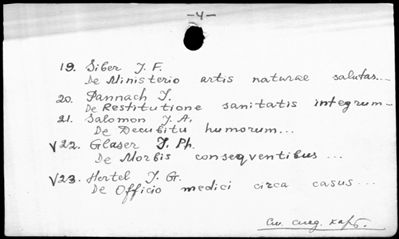 -4-
19. Siber J. F.
De Ministerio artis naturae salutas...
20. Pannach J.
De Restitutione sanitatis integrum-
21. Salomon J. A.
De Decubitu humorum...
V22. Glaser J. Ph.
De Morbis conseqventibus...
V23. Hertel J. G.
De Officio medici circa casus...
См. след. карт.